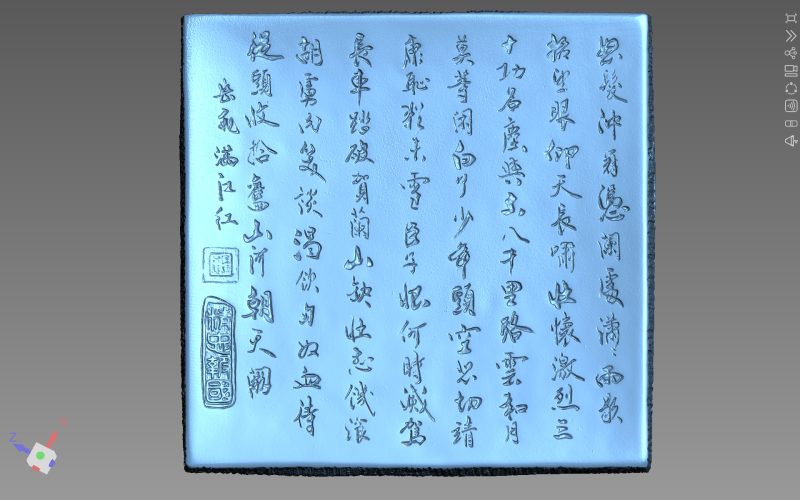 怒髮沖冠憑闌處瀟〻雨歇
抬望眼仰天長嘯壯懷激烈三
十功名塵與土八千里路雲和月
莫等閑白了少年頭空悲切靖
康恥猶未雪臣子恨何時滅駕
長車踏破賀蘭山缺壯志饑湌
胡虜肉笑談渴飲匈奴血待
從頭收拾舊山河朝天闕
岳飛 滿江紅
精忠報國